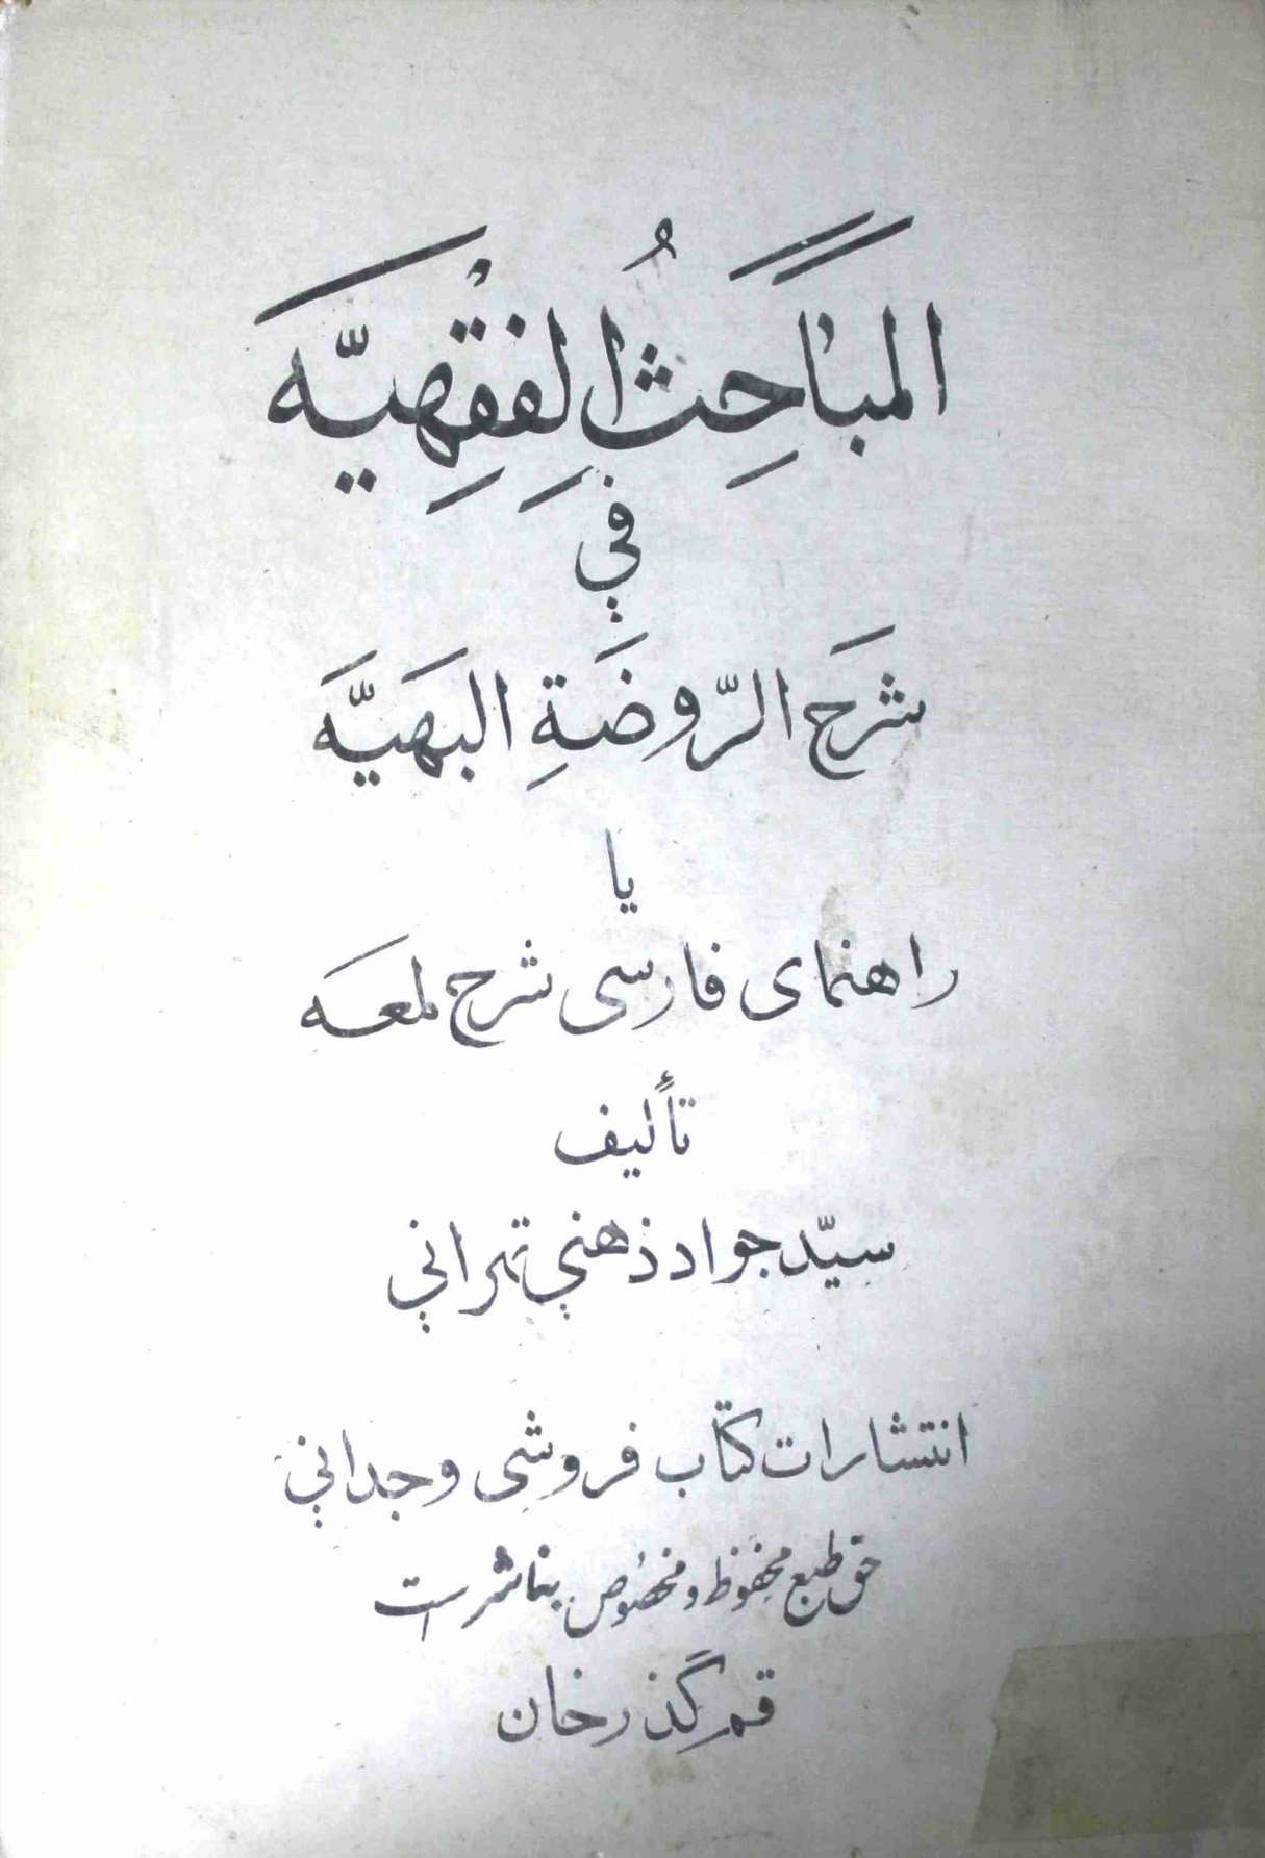 المبَاحِثُ الفِقْهِيَّه
في
شَرح الرّوضَةِ البَهَيَّه
يا
راهنمای فارسی شرح لمعَه
تأليف
سيّد جواد ذهني تهراني
انتشارات کتاب فروشی وجداني
حق طبع محفوظ و مخصوص بناشر است
قم گذرخان